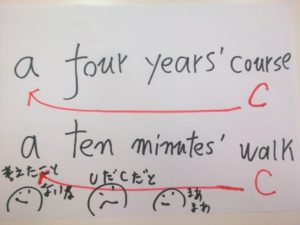 a four years' course
C
a ten minutes' walk
C
考えたこと
ないな
UだCだと
まあ